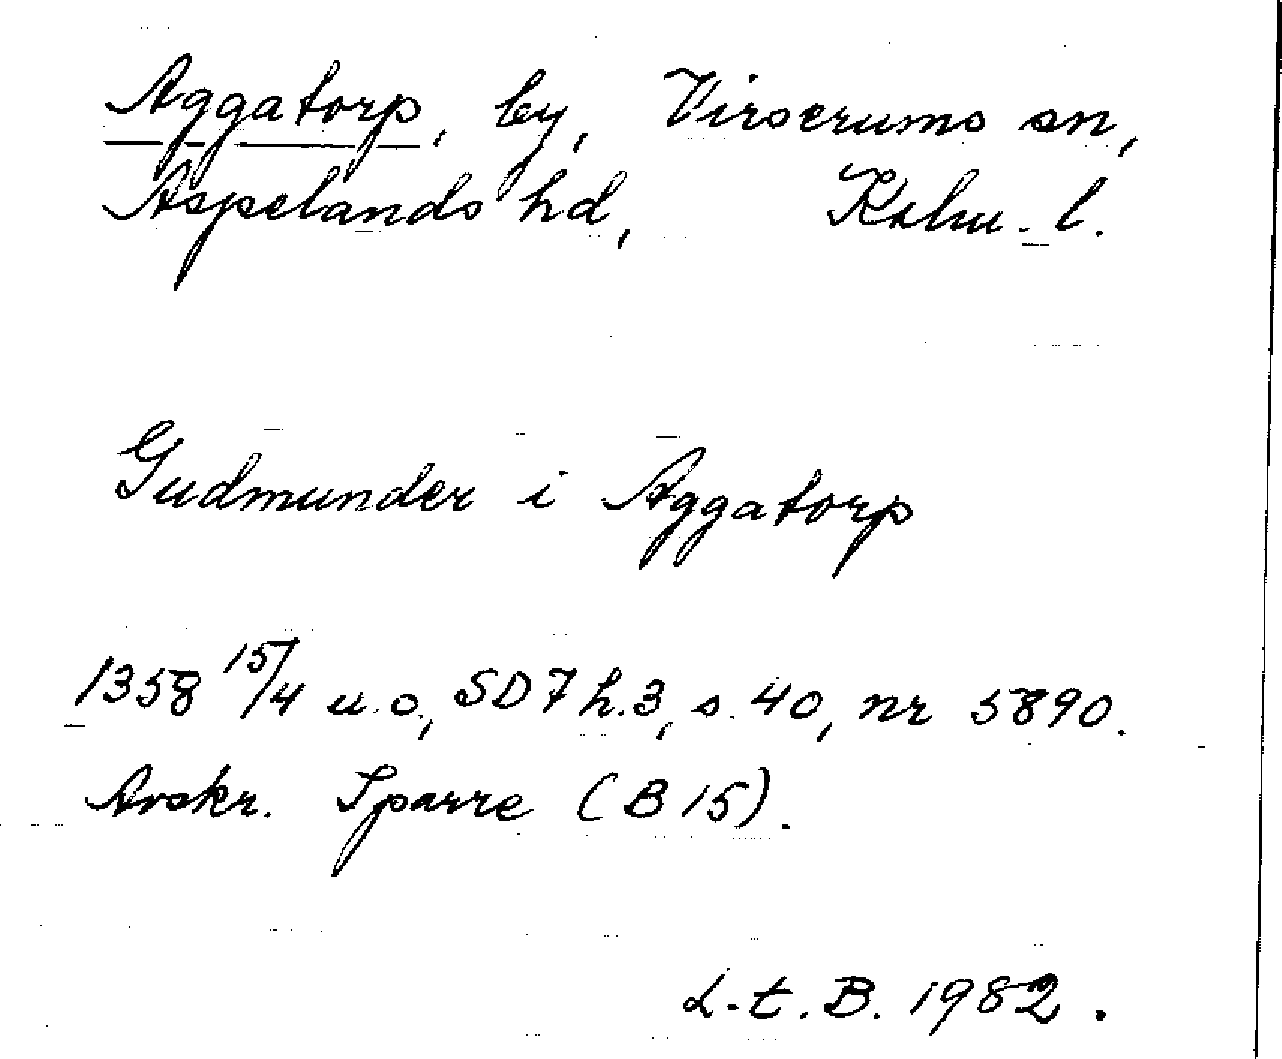 Aggatorp, by, Virserums sn,
Aspelands hd, Kalm. l.
Gudmunder i Aggatorp
1358 15/4 u.o, SD7 h.3, s. 40, nr 5890.
Avskr. Sparre (B 15).
L.t.B. 1982.